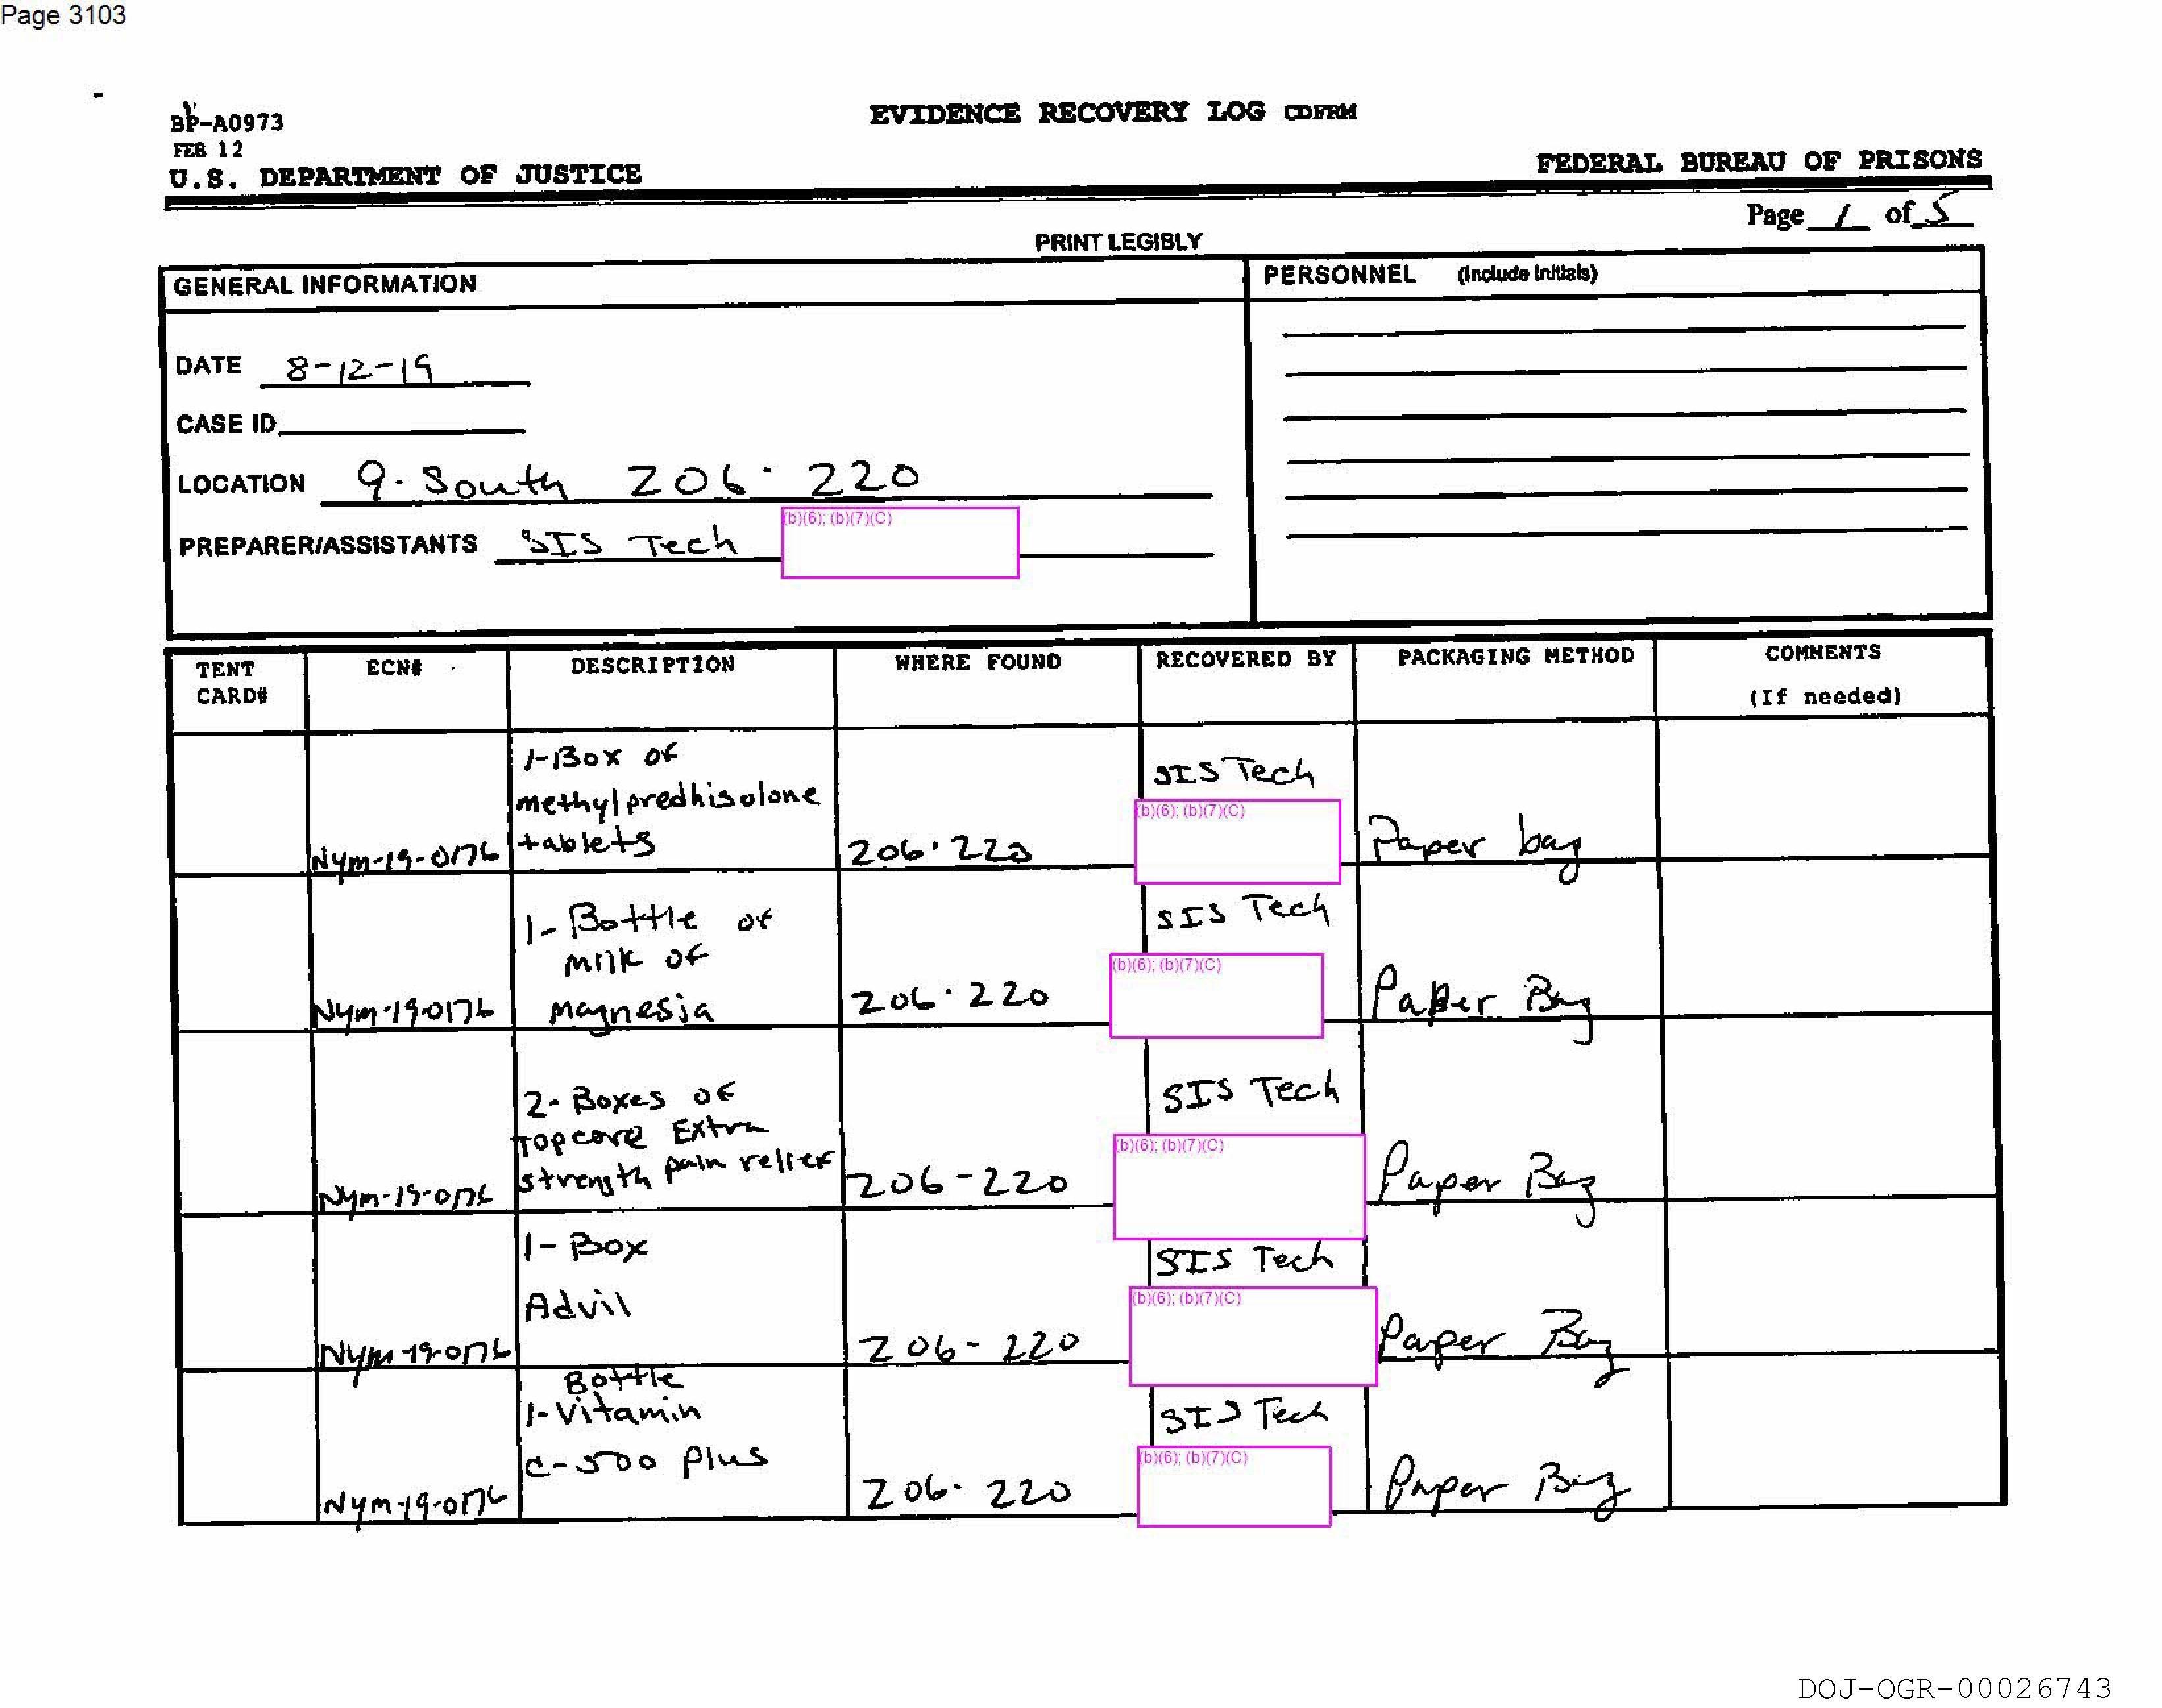 Page 3103
BP-A0973
EVIDENCE RECOVERY LOG CDFRM
FEB 12
U.S. DEPARTMENT OF JUSTICE
FEDERAL BUREAU OF PRISONS
Page 1 of 5
PRINT LEGIBLY
GENERAL INFORMATION
PERSONNEL (Include Initials)
DATE 8-12-19
CASE ID
LOCATION 9-South 206-220
PREPARER/ASSISTANTS SIS Tech (b)(6); (b)(7)(C)
TENT CARD# ECN# DESCRIPTION WHERE FOUND RECOVERED BY PACKAGING METHOD COMMENTS (If needed)
1-Box of
methylpredhisolone
tablets
Nym-19-0176 206-220 SIS Tech (b)(6); (b)(7)(C) Paper bag
1-Bottle of
Milk of
Magnesia
Nym-19-0176 206-220 SIS Tech (b)(6); (b)(7)(C) Paper Bag
2-Boxes of
Topcare Extra
strength pain relief
Nym-19-0176 206-220 SIS Tech (b)(6); (b)(7)(C) Paper Bag
1-Box
Advil
Nym-19-0176 206-220 SIS Tech (b)(6); (b)(7)(C) Paper Bag
Bottle
1-Vitamin
C-500 Plus
Nym-19-0176 206-220 SIS Tech (b)(6); (b)(7)(C) Paper Bag
DOJ-OGR-00026743